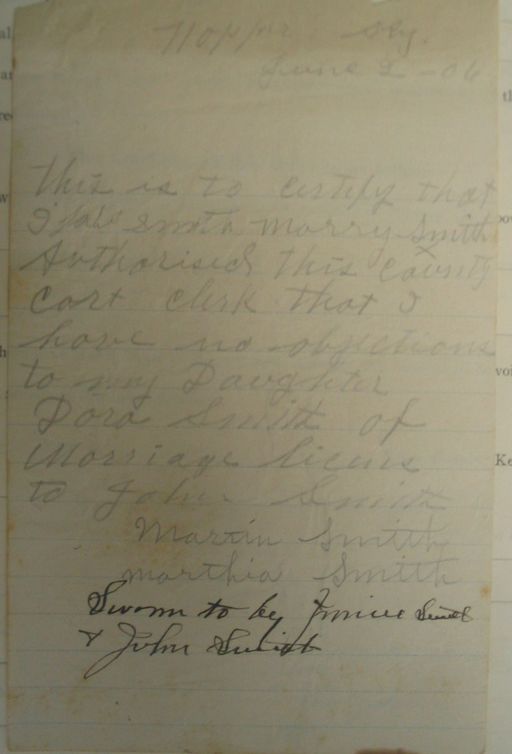 Hopper Ky.
June 2 - 06
This is to certify that
I John Smith Morry Smith
Authorised this county
cort clerk that I
have no objections
to my Daughter
Dora Smith of
Marriage licens
to John Smith
Martin Smith
marthia Smith
Sworn to by Smith
& John Smith